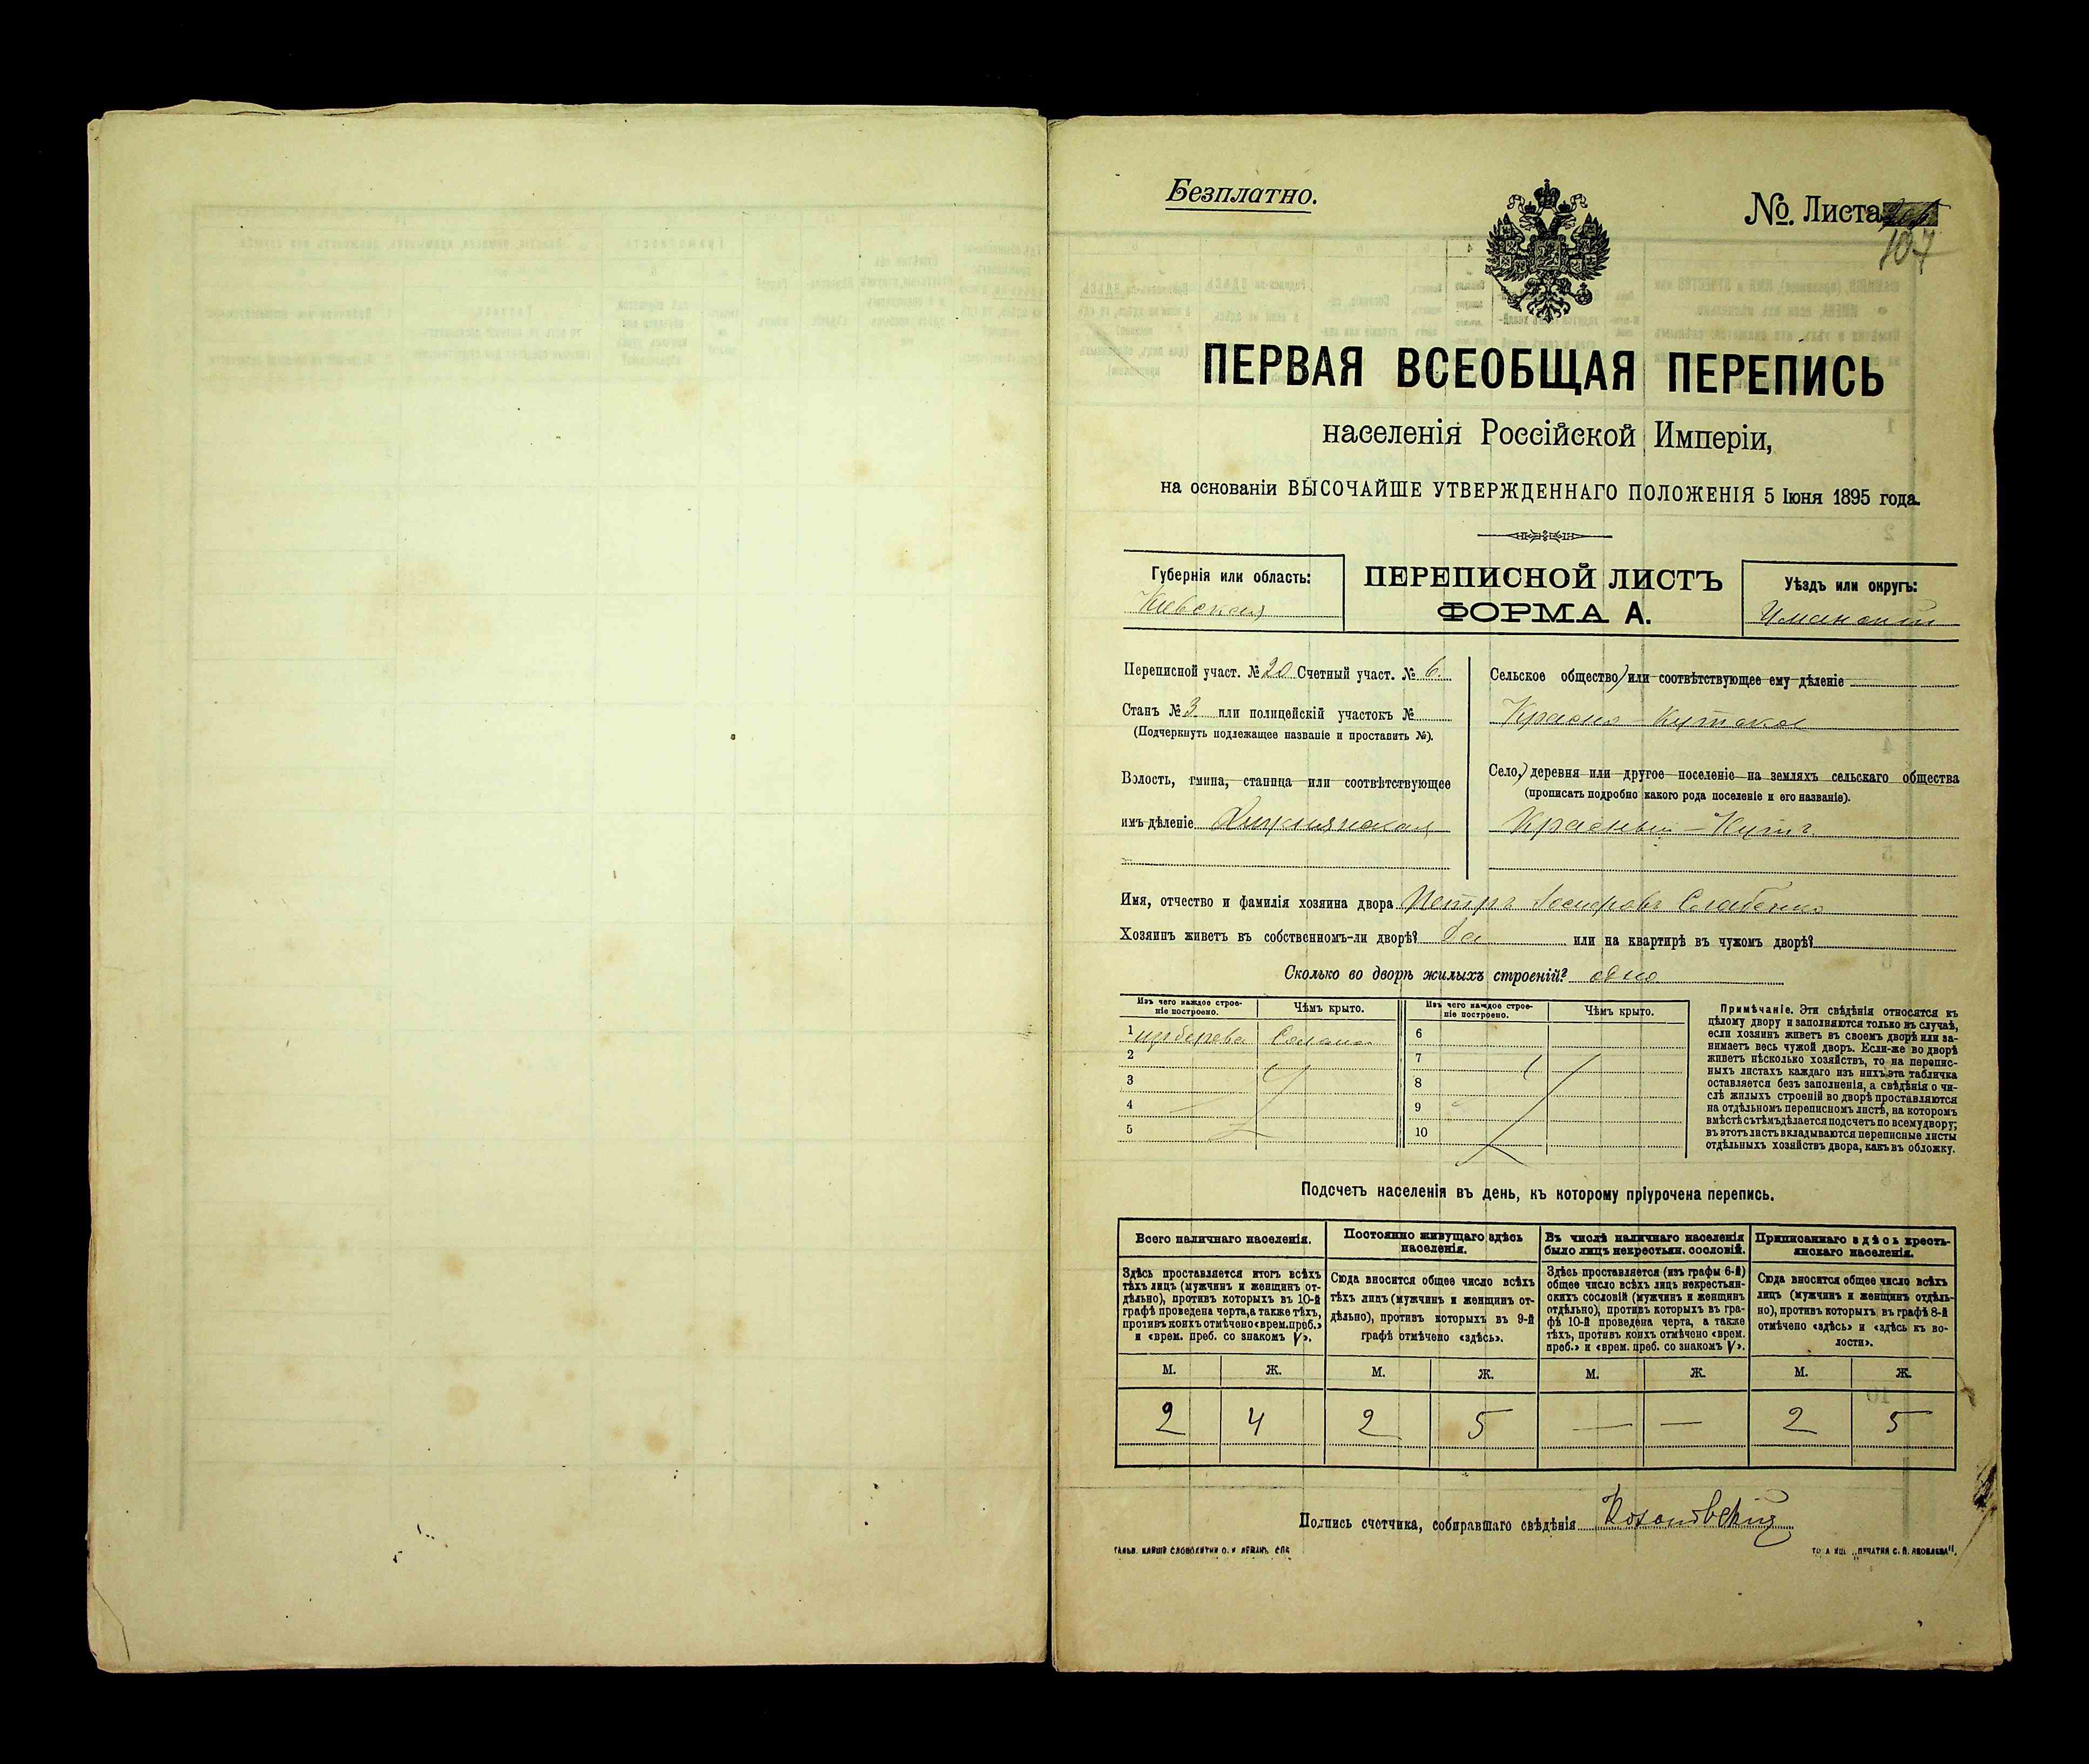 Безплатно.
№. Листа
107
ПЕРВАЯ ВСЕОБЩАЯ ПЕРЕПИСЬ
населенія Россійской Имперіи,
на основаніи ВЫСОЧАЙШЕ УТВЕРЖДЕННАГО ПОЛОЖЕНІЯ 5 Іюня 1895 года.
Губернія или область:
Кіевская
ПЕРЕПИСНОЙ ЛИСТЪ
ФОРМА А.
Уѣздъ или округъ:
Уманскій
Переписной участ. № 20 Счетный участ. № 6.
Станъ № 3 или полицейскій участокъ №
(Подчеркнуть подлежащее названіе и проставить №).
Волость, гмина, станица или соотвѣтствующее
имъ дѣленіе
Сельское общество) или соотвѣтствующее ему дѣленіе
Красно-Кутское
Село,) деревня или другое поселеніе на земляхъ сельскаго общества
(прописать подробно какого рода поселеніе и его названіе).
Красный-Кутъ
Имя, отчество и фамилія хозяина двора Петръ Іосифовъ
Хозяинъ живетъ въ собственномъ-ли дворѣ? да или на квартирѣ въ чужомъ дворѣ?
Сколько во дворѣ жилыхъ строеній? одно
Изъ чего каждое строе-
ніе построено.
Чѣмъ крыто.
Изъ чего каждое строе-
ніе построено.
Чѣмъ крыто.
1 изъ дерева Солома
2
3
4
5
6
7
8
9
10
Примѣчаніе. Эти свѣдѣнія относятся къ
цѣлому двору и заполняются только въ случаѣ,
если хозяинъ живетъ въ своемъ дворѣ или за-
нимаетъ весь чужой дворъ. Если-же во дворѣ
живетъ нѣсколько хозяйствъ, то на перепис-
ныхъ листахъ каждаго изъ нихъ эта табличка
оставляется безъ заполненія, а свѣдѣнія о чи-
слѣ жилыхъ строеній во дворѣ проставляются
на отдѣльномъ переписномъ листѣ, на которомъ
вмѣстѣ съ тѣмъ дѣлается подсчетъ по всему двору;
въ этотъ листъ вкладываются переписные листы
отдѣльныхъ хозяйствъ двора, какъ въ обложку.
Подсчетъ населенія въ день, къ которому пріурочена перепись.
Всего наличнаго населенія.
Здѣсь проставляется итогъ всѣхъ
тѣхъ лицъ (мужчинъ и женщинъ от-
дѣльно), противъ которыхъ въ 10-й
графѣ проведена черта, а также тѣхъ,
противъ коихъ отмѣчено «врем. преб.»
и «врем. преб. со знакомъ V».
Постоянно живущаго здѣсь
населенія.
Сюда вносится общее число всѣхъ
тѣхъ лицъ (мужчинъ и женщинъ от-
дѣльно), противъ которыхъ въ 9-й
графѣ отмѣчено «здѣсь».
Въ числѣ наличнаго населенія
было лицъ некрестьян. сословій.
Здѣсь проставляется (изъ графы 6-й)
общее число всѣхъ лицъ некрестьян-
скихъ сословій (мужчинъ и женщинъ
отдѣльно), противъ которыхъ въ гра-
фѣ 10-й проведена черта, а также
тѣхъ, противъ коихъ отмѣчено «врем.
преб.» и «врем. преб. со знакомъ V».
Приписаннаго здѣсь кресть-
янскаго населенія.
Сюда вносится общее число всѣхъ
лицъ (мужчинъ и женщинъ отдѣль-
но), противъ которыхъ въ графѣ 8-й
отмѣчено «здѣсь» и «здѣсь къ во-
лости».
М. Ж. М. Ж. М. Ж. М. Ж.
2 4 2 5 — — 2 5
Подпись счетчика, собиравшаго свѣдѣнія